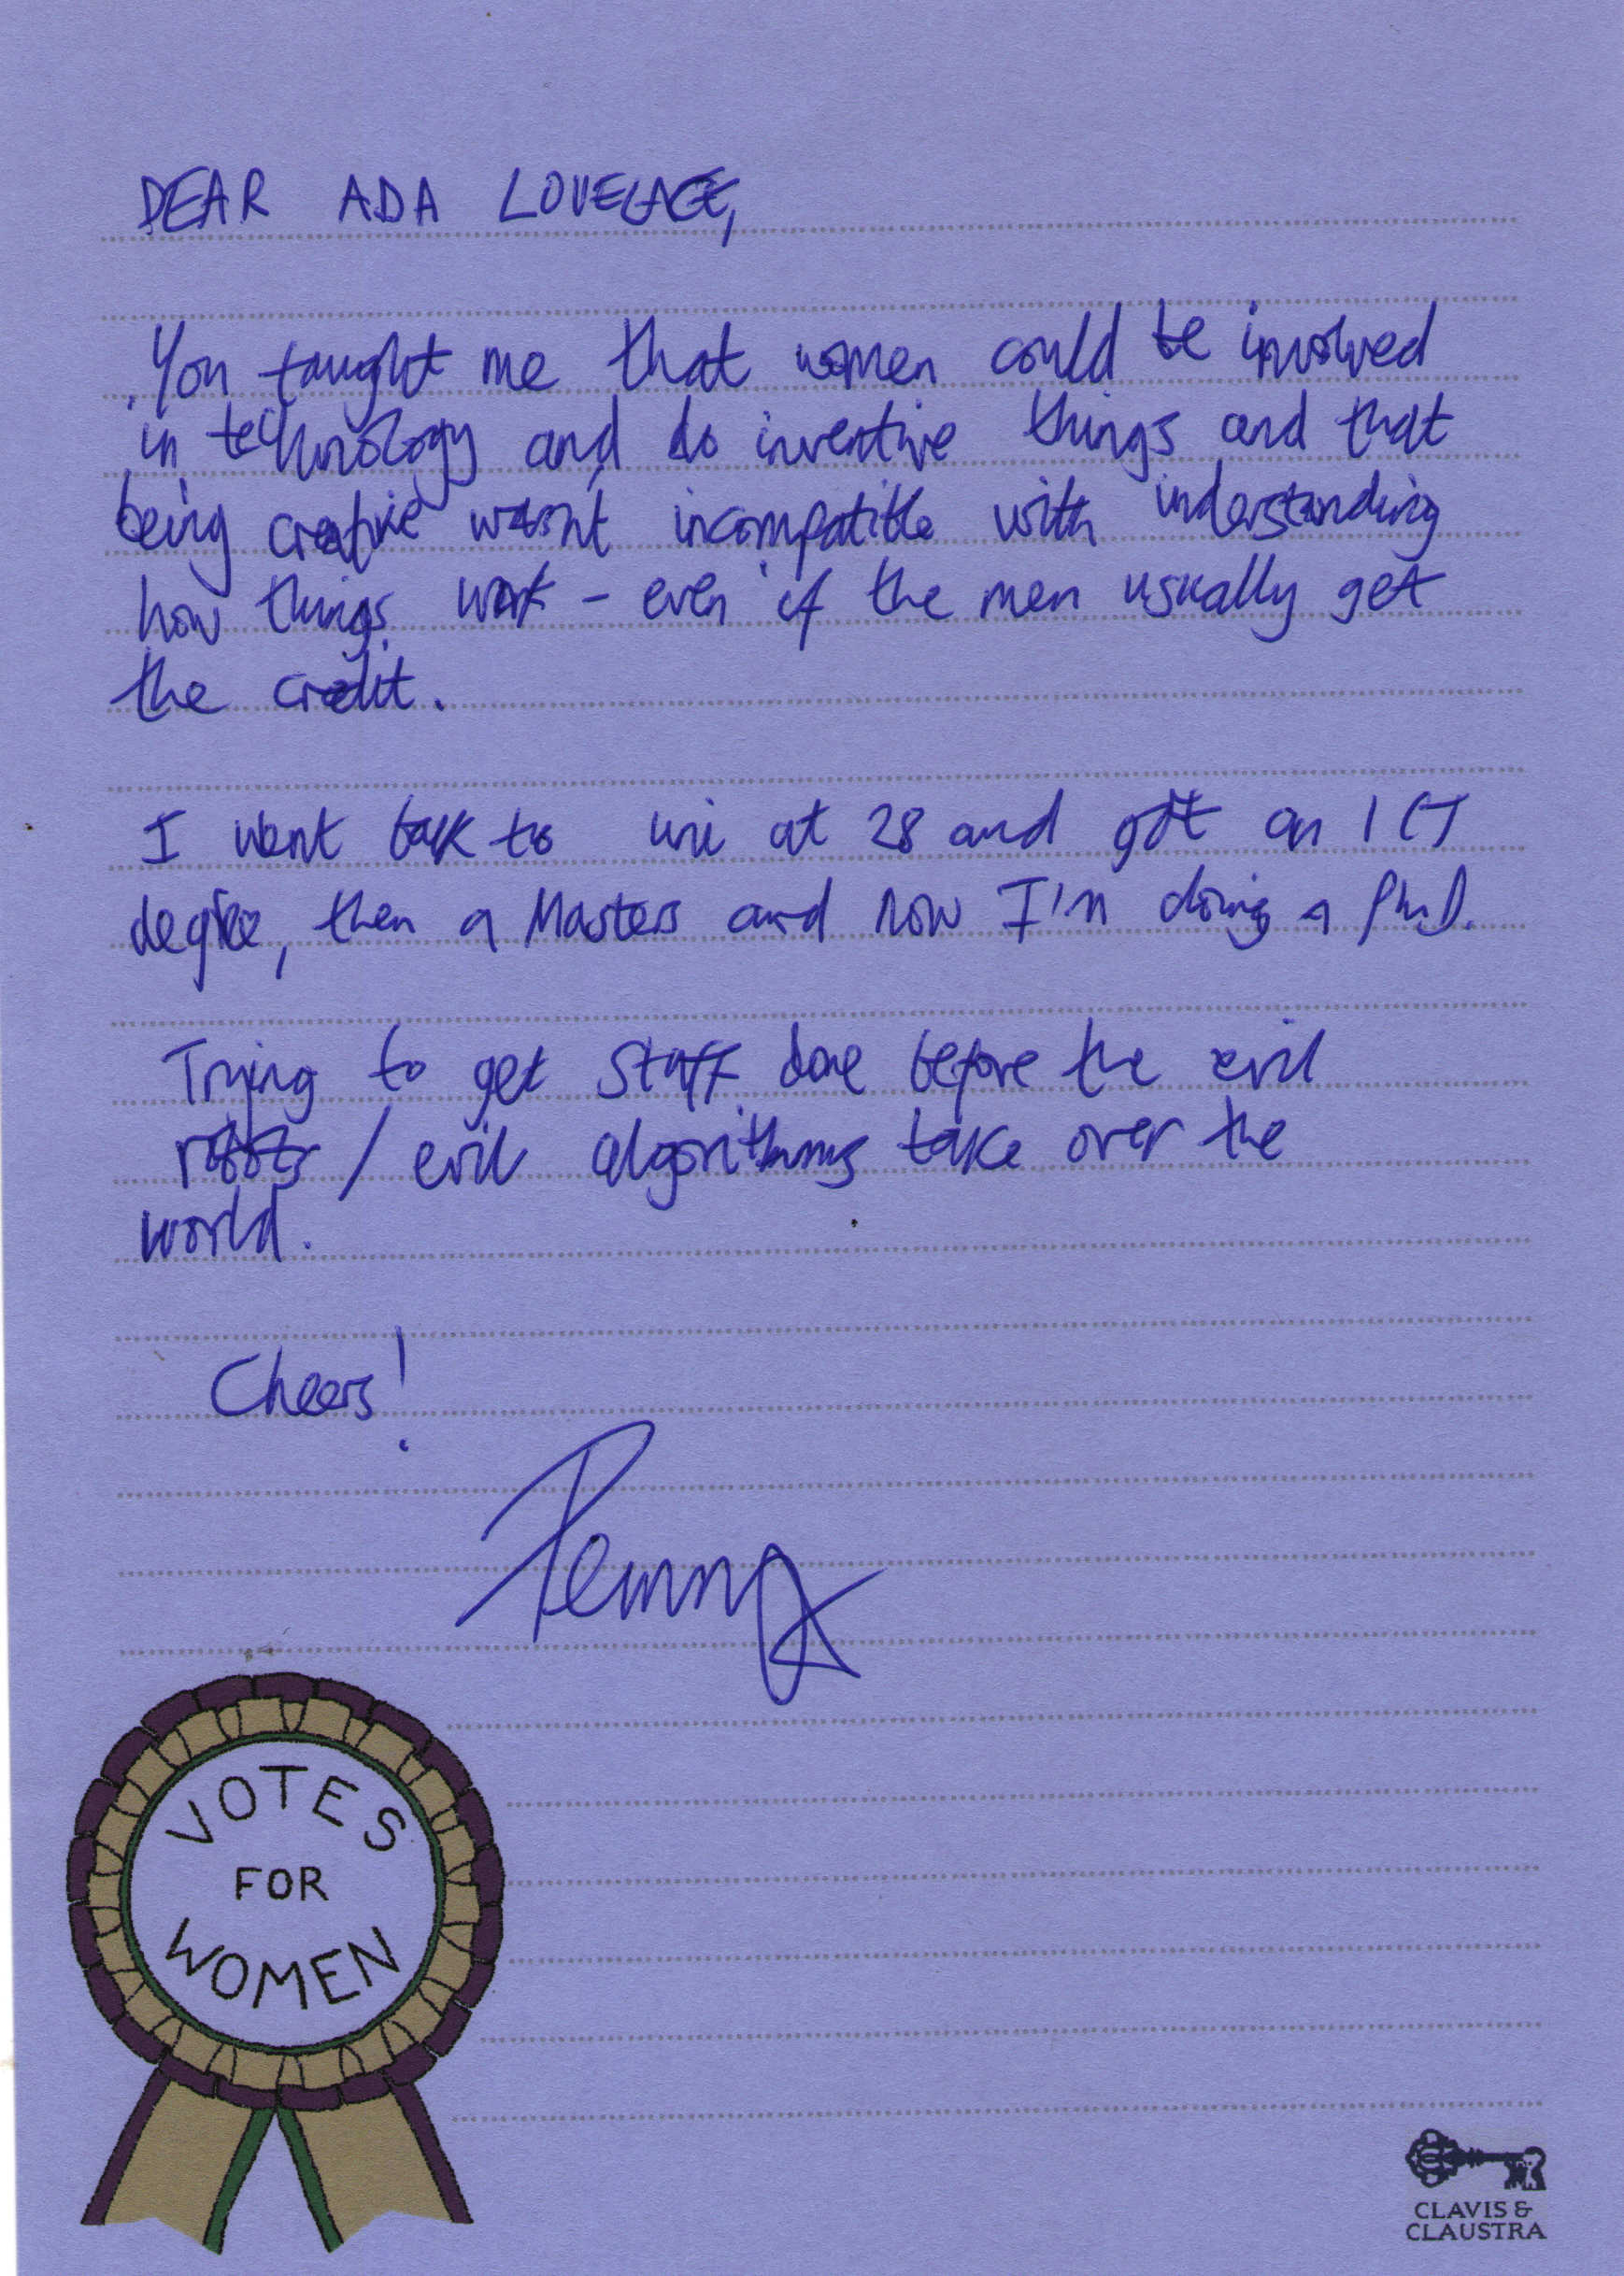 DEAR ADA LOVELACE,
You taught me that women could be involved
in technology and do inventive things and that
being creative wasn't incompatible with understanding
how things work – even if the men usually get
the credit.
I went back to uni at 28 and got an ICT
degree, then a Masters and now I'm doing a PhD.
Trying to get stuff done before the evil
robots / evil algorithms take over the
world.
Cheers!
Penny
VOTES
FOR
WOMEN
CLAVIS &
CLAUSTRA